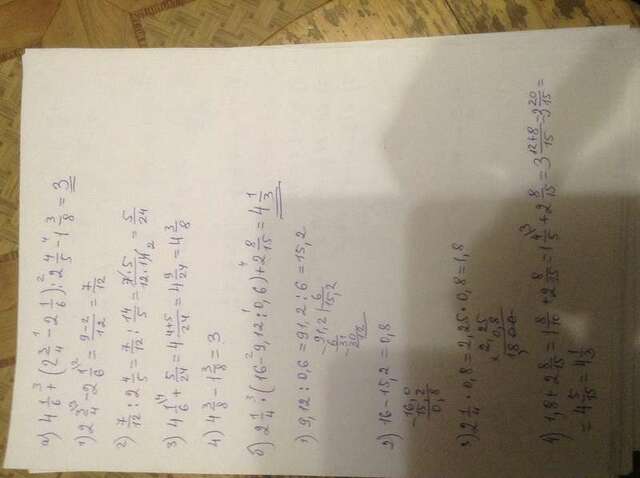 а) 4 1/6 + (2 3/4 - 2 1/6) : 2 4/5 - 1 3/8 = 3
1) 2 3/4 - 2 1/6 = 9-2/12 = 7/12
2) 7/12 : 2 4/5 = 7/12 : 14/5 = 7·5/12·14 2 = 5/24
3) 4 1/6 + 5/24 = 4 4+5/24 = 4 9/24 = 4 3/8
4) 4 3/8 - 1 3/8 = 3
б) 2 1/4 · (16 - 9,12 : 0,6) + 2 8/15 = 4 1/3
1) 9,12 : 0,6 = 91,2 : 6 = 15,2
91,2 | 6
6 15,2
31
30
12
2) 16 - 15,2 = 0,8
- 16,0
15,2
0,8
3) 2 1/4 · 0,8 = 2,25 · 0,8 = 1,8
2,25
× 0,8
1,800
4) 1,8 + 2 8/15 = 1 8/10 + 2 8/15 = 1 4/5 + 2 8/15 = 3 12+8/15 = 3 20/15 =
= 4 5/15 = 4 1/3